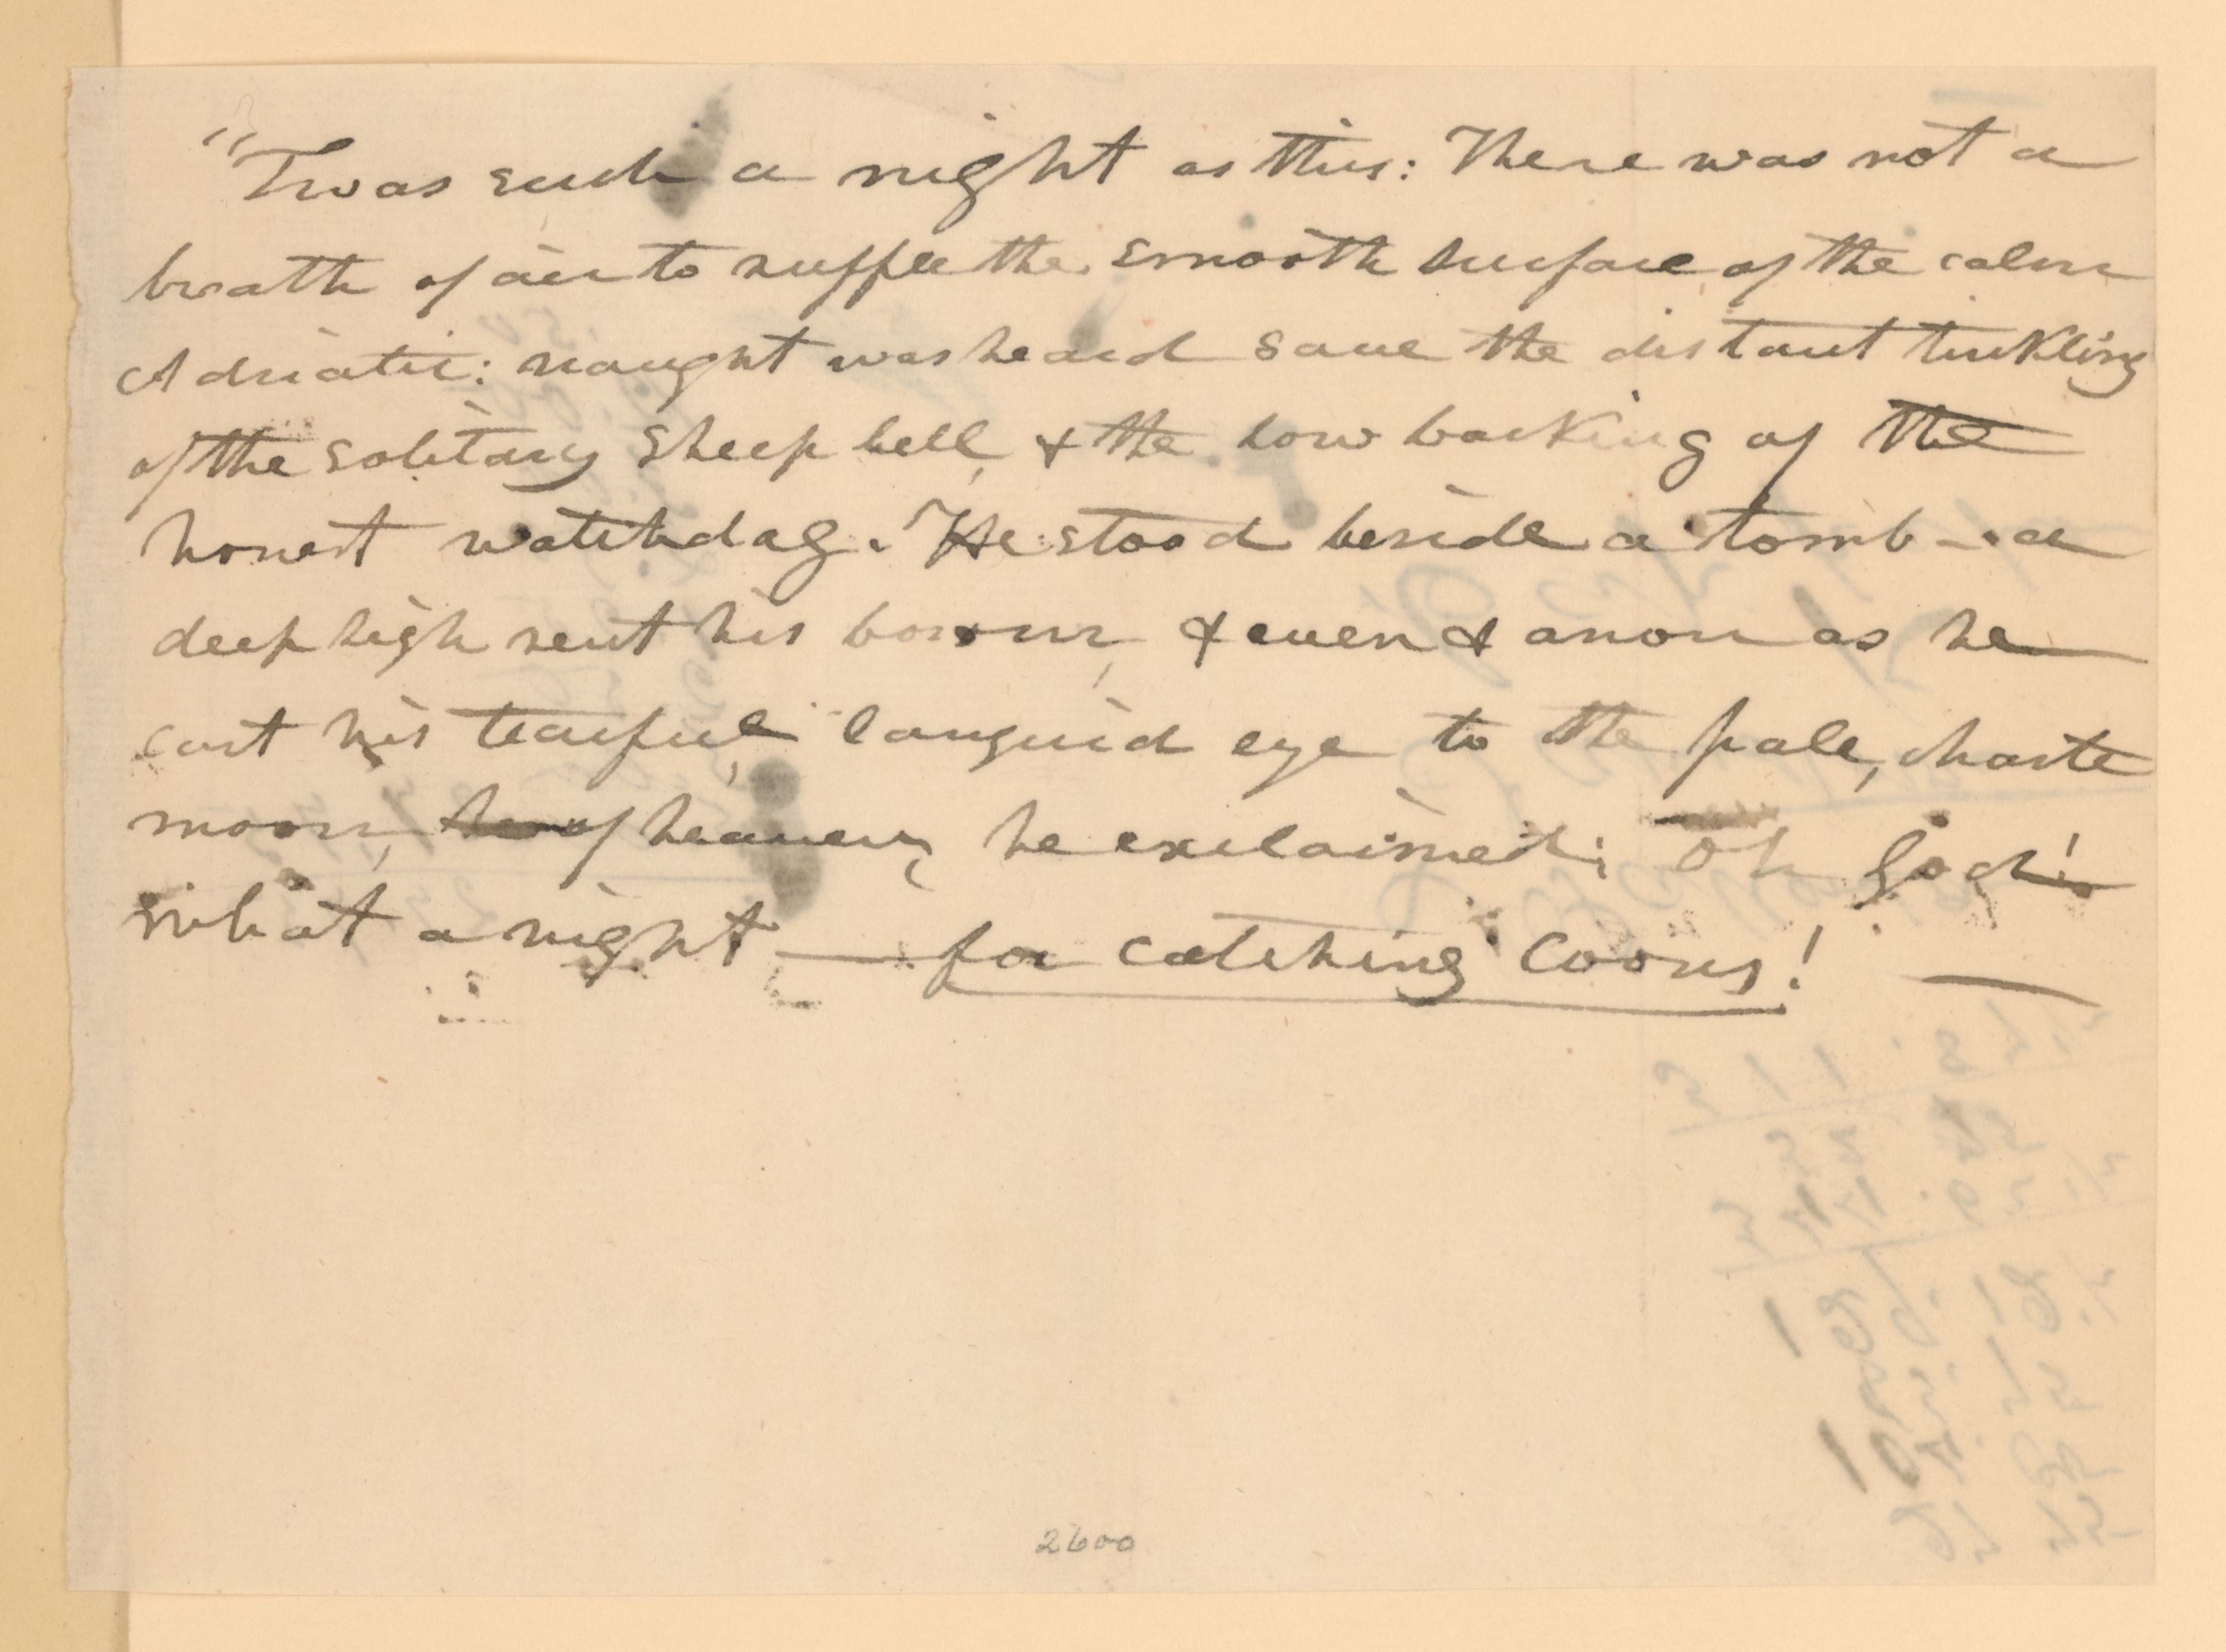 "Twas such a night as this: There was not a
breath of air to ruffle the smooth surface, of the calm
Adriatic: naught was heard save the distant tinkling
of the solitary sheep bell, & the low barking of the
honest watchdog. He stood beside a tomb - a
deep sigh rent his bosom, & ever & anon as he
cast his tearful, languid eye to the pale, chaste
moon, of heaven, he exclaimed; Oh God!
what a night — for catching Coons! —
2600